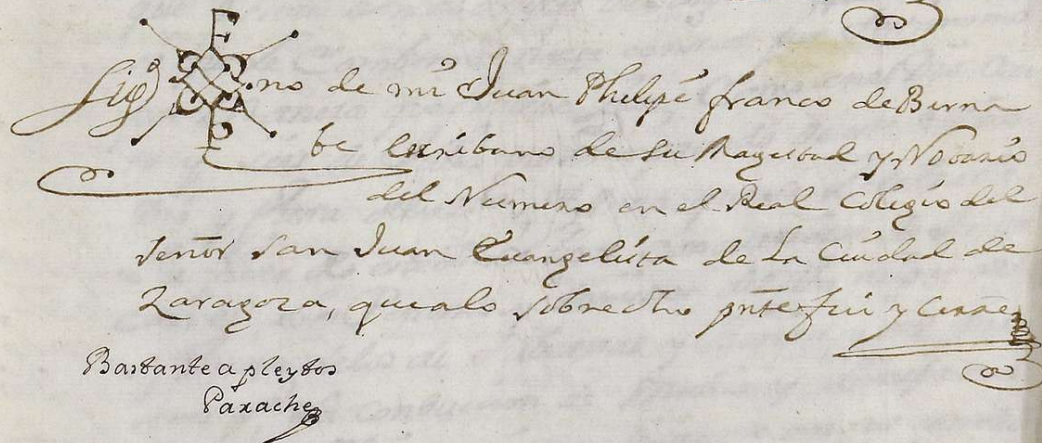 Sig no de mi Juan Phelipe franco de Berna
be escribano de su Magestad y Notario
del Numero en el Real Colegio del
señor san Juan Evangelista de La Ciudad de
Zaragoza, que alo sobredho pnte fui y cerre
Bastante a pleytos
Paxache